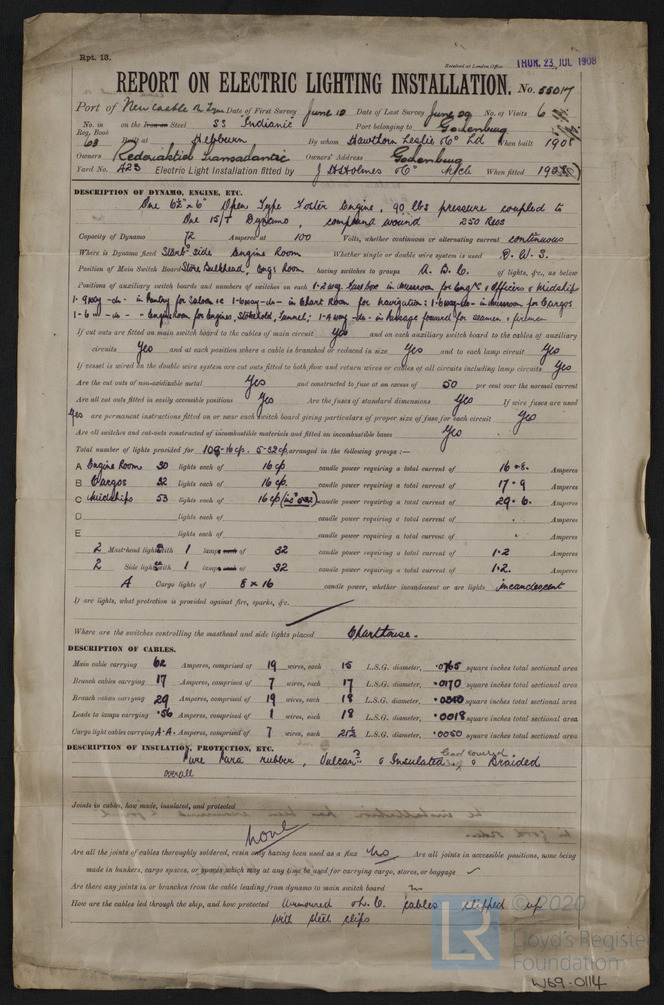 Rpt. 13.
Received at London Office THUR. 23 JUL 1908
REPORT ON ELECTRIC LIGHTING INSTALLATION. No. 55017
Port of Newcastle on Tyne Date of First Survey June 10 Date of Last Survey June 29 No. of Visits 6
No. in Reg. Book 63 on the Iron or Steel SS "Indianic" Port belonging to Gothenburg
Built at Hepburn By whom Hawthorn Leslie & Co Ld When built 1908
Owners Rederiaktieb Transatlantic Owners' Address Gothenburg
Yard No. 423 Electric Light Installation fitted by J H Holmes & Co N/cle When fitted 1908
DESCRIPTION OF DYNAMO, ENGINE, ETC.
One 6½" x 6" Open Type Foster Engine, 90 lbs pressure coupled to
One Dynamo, compound wound 250 Revs
Capacity of Dynamo 72 Amperes at 100 Volts, whether continuous or alternating current continuous
Where is Dynamo fixed Starbd side Engine Room Whether single or double wire system is used D. W. S.
Position of Main Switch Board Store Bulkhead, Eng's Room having switches to groups A. B. C. of lights, &c., as below
Positions of auxiliary switch boards and numbers of switches on each 1-2 way fuse box in messroom for Eng'rs & Officers & Midships
1-9 way -do- in Pantry for Saloon &c 1-6 way -do- in Chart Room for navigation; 1-6 way -do- in messroom for Cargos
1-6 -do- - Engine room for Engine, Stokehold, Tunnel; 1-4 way -do- in Passage forward for seamen & firemen
If cut outs are fitted on main switch board to the cables of main circuit Yes and on each auxiliary switch board to the cables of auxiliary
circuits Yes and at each position where a cable is branched or reduced in size Yes and to each lamp circuit Yes
If vessel is wired on the double wire system are cut outs fitted to both flow and return wires or cables of all circuits including lamp circuits Yes
Are the cut outs of non-oxidizable metal Yes and constructed to fuse at an excess of 50 per cent over the normal current
Are all cut outs fitted in easily accessible positions Yes Are the fuses of standard dimensions Yes If wire fuses are used
Yes are permanent instructions fitted on or near each switch board giving particulars of proper size of fuse for each circuit Yes
Are all switches and cut-outs constructed of incombustible materials and fitted on incombustible bases Yes
Total number of lights provided for 109-16cp. 5-32cp arranged in the following groups :—
A Engine Room 30 lights each of 16 cp candle power requiring a total current of 16.8. Amperes
B Cargos 32 lights each of 16 cp. candle power requiring a total current of 17.9 Amperes
C Midships 53 lights each of 16 cp candle power requiring a total current of 29.6. Amperes
D lights each of candle power requiring a total current of Amperes
E lights each of candle power requiring a total current of Amperes
2 Mast-head lights with 1 lamps each of 32 candle power requiring a total current of 1.2 Amperes
2 Side lights with 1 lamps each of 32 candle power requiring a total current of 1.2. Amperes
4 Cargo lights of 8 x 16 candle power, whether incandescent or arc lights incandescent
If arc lights, what protection is provided against fire, sparks, &c.
Where are the switches controlling the masthead and side lights placed Charthouse.
DESCRIPTION OF CABLES.
Main cable carrying 62 Amperes, comprised of 19 wires, each 15 L.S.G. diameter, .0765 square inches total sectional area
Branch cables carrying 17 Amperes, comprised of 7 wires, each 17 L.S.G. diameter, .0170 square inches total sectional area
Branch cables carrying 29 Amperes, comprised of 19 wires, each 18 L.S.G. diameter, square inches total sectional area
Leads to lamps carrying .56 Amperes, comprised of 1 wires, each 18 L.S.G. diameter, .0018 square inches total sectional area
Cargo light cables carrying 4.4. Amperes, comprised of 7 wires, each 21½ L.S.G. diameter, square inches total sectional area
DESCRIPTION OF INSULATION, PROTECTION, ETC.
Pure Para rubber, Vulcan'd & Insulated Lead covered & Braided
overall
Joints in cables, how made, insulated, and protected
none
Are all the joints of cables thoroughly soldered, resin only having been used as a flux No Are all joints in accessible positions, none being
made in bunkers, cargo spaces, or spaces which may at any time be used for carrying cargo, stores, or baggage
Are there any joints in or branches from the cable leading from dynamo to main switch board
How are the cables led through the ship, and how protected Armoured & L.C. cables clipped up
with steel clips
LR © 2020
Lloyd's Register
Foundation
W69-0114